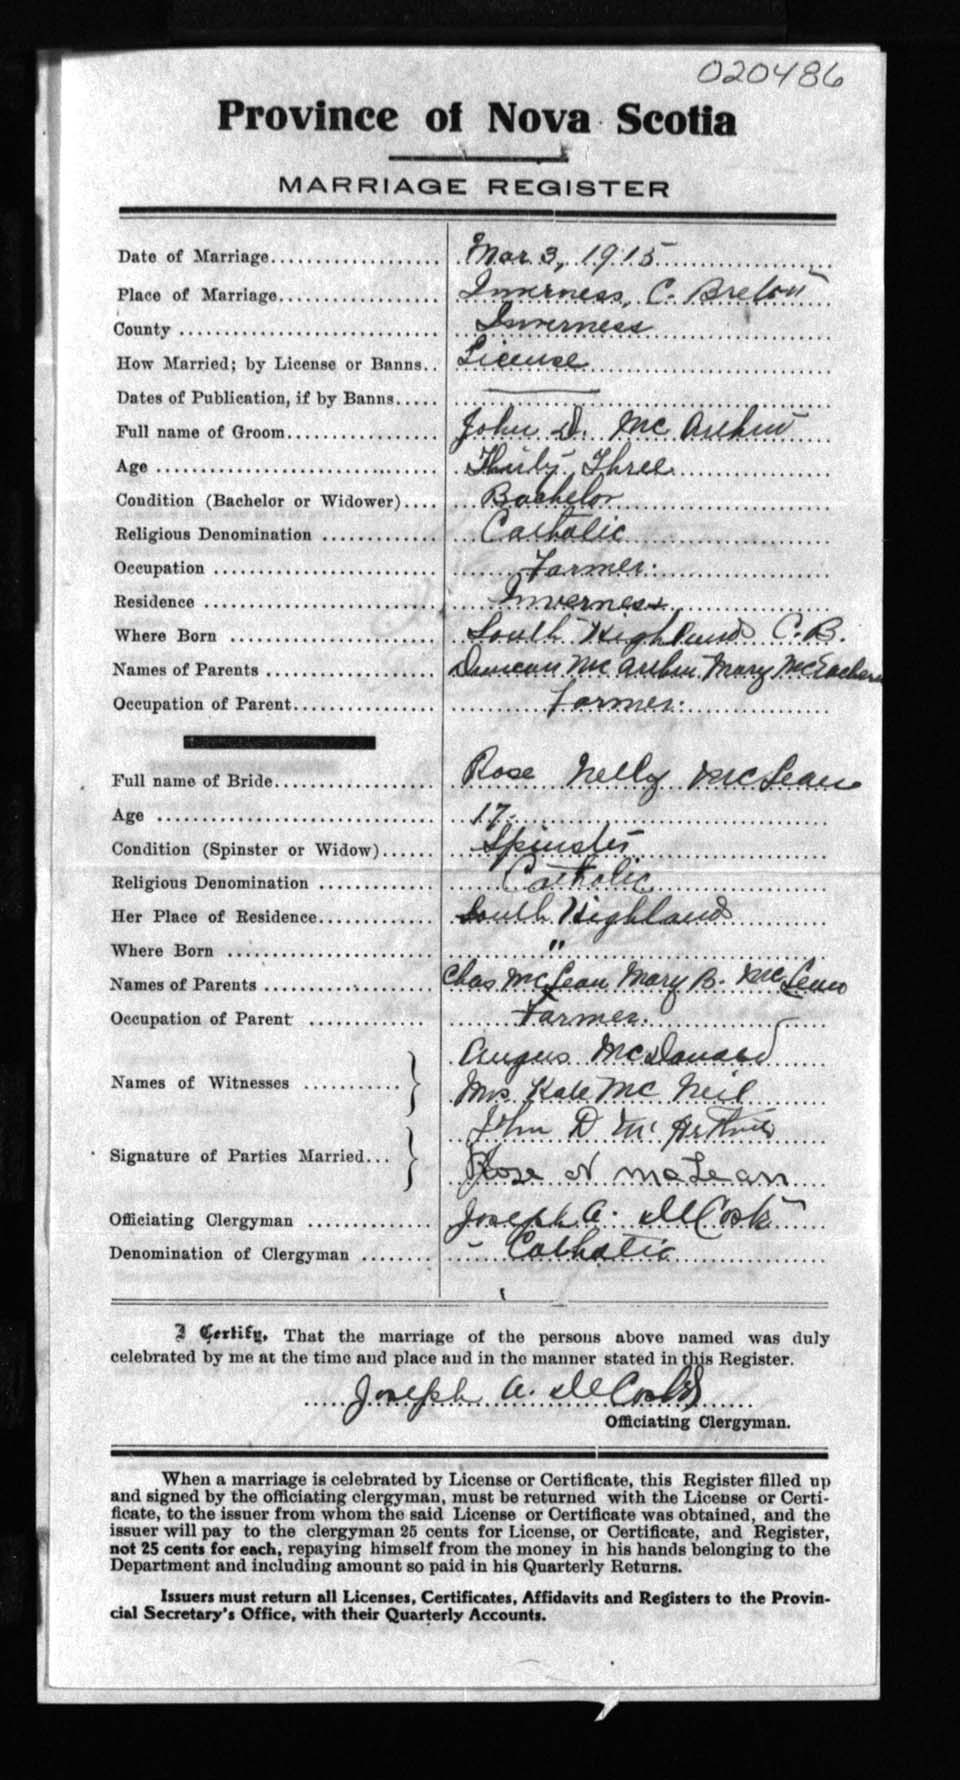 020486
Province of Nova Scotia
MARRIAGE REGISTER
Date of Marriage.................... Mar 3, 1915
Place of Marriage.................. Inverness, C. Breton
County ............................. Inverness
How Married; by License or Banns.. License
Dates of Publication, if by Banns..... ———
Full name of Groom................. John D. McArthur
Age ............................... Thirty Three
Condition (Bachelor or Widower).... Bachelor
Religious Denomination ............. Catholic
Occupation ......................... Farmer.
Residence .......................... Inverness
Where Born ........................ South Highlands C.B.
Names of Parents ................... Duncan McArthur Mary McEachern
Occupation of Parent................ Farmer.
Full name of Bride.................. Rose Nelly McLean
Age ............................... 17.
Condition (Spinster or Widow)...... Spinster
Religious Denomination ............. Catholic
Her Place of Residence.............. South Highlands
Where Born ........................ "
Names of Parents ................... Chas McLean Mary B. McLean
Occupation of Parent .............. Farmer.
Angus McDonald
Names of Witnesses ........... }
Mrs Kate McNeil
John D McArthur
Signature of Parties Married... }
Rose N McLean
Officiating Clergyman ............. Joseph A. DeCoste
Denomination of Clergyman ........ Catholic
I Certify, That the marriage of the persons above named was duly
celebrated by me at the time and place and in the manner stated in this Register.
Joseph A. DeCoste
Officiating Clergyman.
When a marriage is celebrated by License or Certificate, this Register filled up
and signed by the officiating clergyman, must be returned with the License or Certi-
ficate, to the issuer from whom the said License or Certificate was obtained, and the
issuer will pay to the clergyman 25 cents for License, or Certificate, and Register,
not 25 cents for each, repaying himself from the money in his hands belonging to the
Department and including amount so paid in his Quarterly Returns.
Issuers must return all Licenses, Certificates, Affidavits and Registers to the Provin-
cial Secretary's Office, with their Quarterly Accounts.